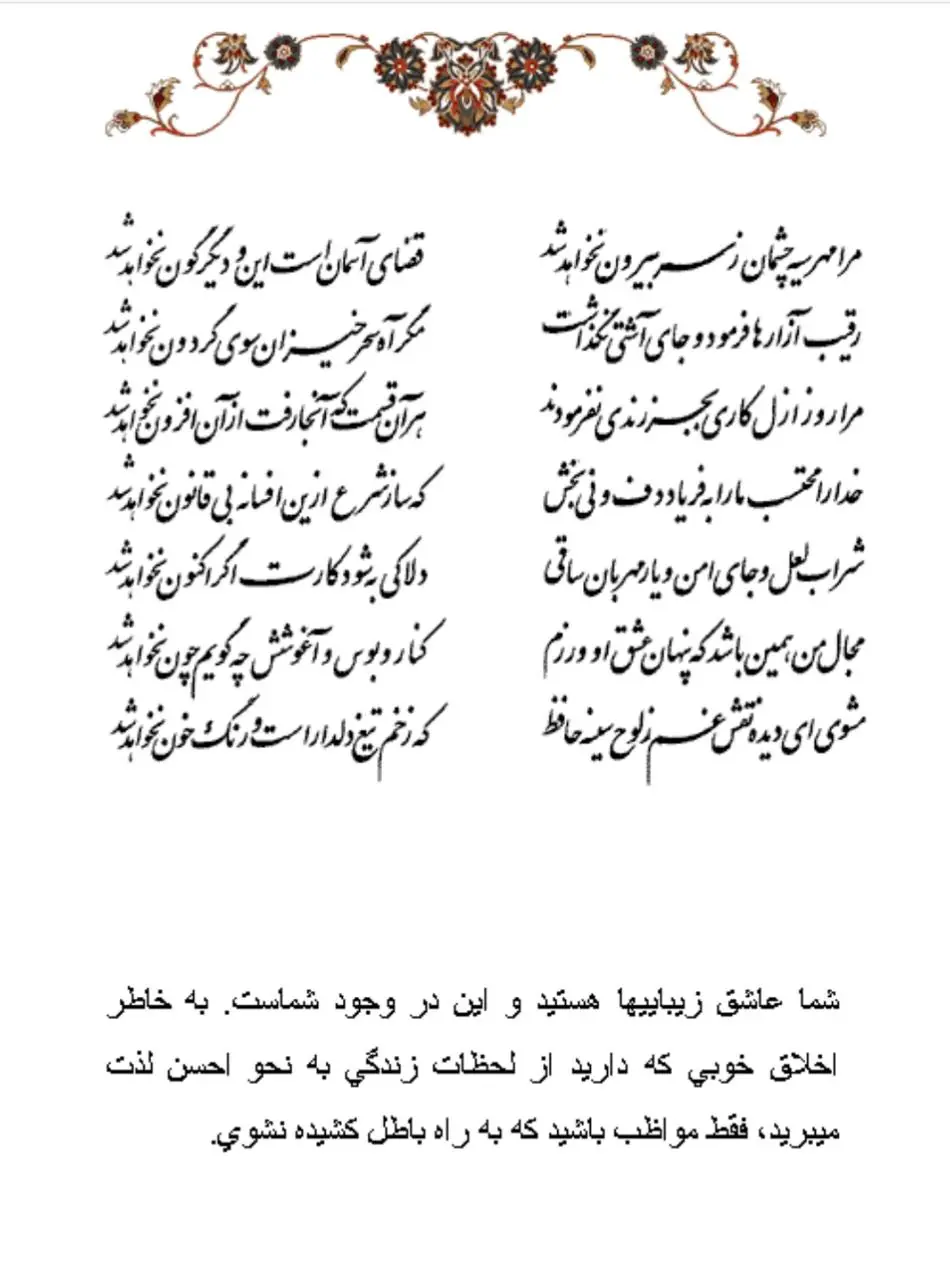 مرا مهر سیه چشمان ز سر بیرون نخواهد شد
قضای آسمان است این و دیگرگون نخواهد شد
رقیب آزارها فرمود و جای آشتی نگذاشت
مگر آه سحرخیزان سوی گردون نخواهد شد
مرا روز ازل کاری بجز رندی نفرمودند
هر آن قسمت که آنجا رفت از آن افزون نخواهد شد
خدا را محتسب ما را به فریاد دف و نی بخش
که ساز شرع ازین افسانه بی قانون نخواهد شد
شراب لعل و جای امن و یار مهربان ساقی
دلا کی به شود کارت اگر اکنون نخواهد شد
مجال من همین باشد که پنهان عشق او ورزم
کنار و بوس و آغوشش چه گویم چون نخواهد شد
مشوی ای دیده نقش غم ز لوح سینه حافظ
که زخم تیغ دلدار است و رنگ خون نخواهد شد
شما عاشق زیباییها هستید و این در وجود شماست. به خاطر
اخلاق خوبي که دارید از لحظات زندگي به نحو احسن لذت
میبرید، فقط مواظب باشید که به راه باطل کشیده نشوي.